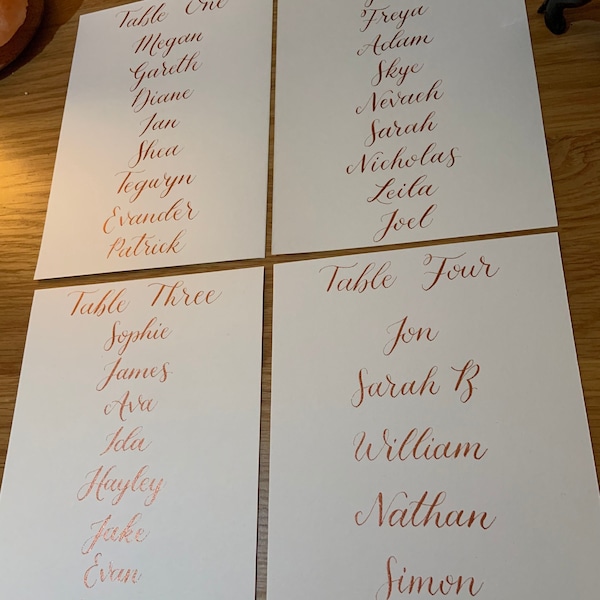 Table One
Megan
Gareth
Diane
Ian
Shea
Tegwyn
Evander
Patrick
Freya
Adam
Skye
Nevaeh
Sarah
Nicholas
Leila
Joel
Table Three
Sophie
James
Ava
Ida
Hayley
Jake
Evan
Table Four
Jon
Sarah B
William
Nathan
Simon